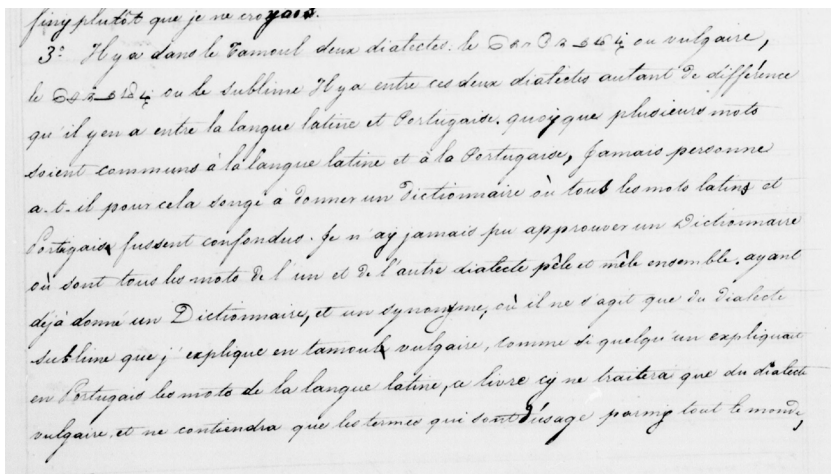 finy plutôt que je ne croyais.
3.º Il y a dans le Tamoul deux dialectes. le ou vulgaire,
le ou le sublime Il y a entre ces deux dialectes autant de différence
qu'il y en a entre la langue latine et Portugaise. quoyque plusieurs mots
soient communs à la langue latine et à la Portugaise, jamais personne
a-t-il pour cela songé à donner un Dictionnaire où tous les mots latins et
Portugais fussent confondus. Je n'ay jamais pu approuver un Dictionnaire
où sont tous les mots de l'un et de l'autre dialecte pêle et mêle ensemble. ayant
déjà donné un Dictionnaire, et un synonyme, où il ne s'agit que du dialecte
sublime que j'explique en tamoul vulgaire, comme si quelqu'un expliquait
en Portugais les mots de la langue latine, ce livre cy ne traitera que du dialecte
vulgaire, et ne contiendra que les termes qui sont d'usage parmy tout le monde,